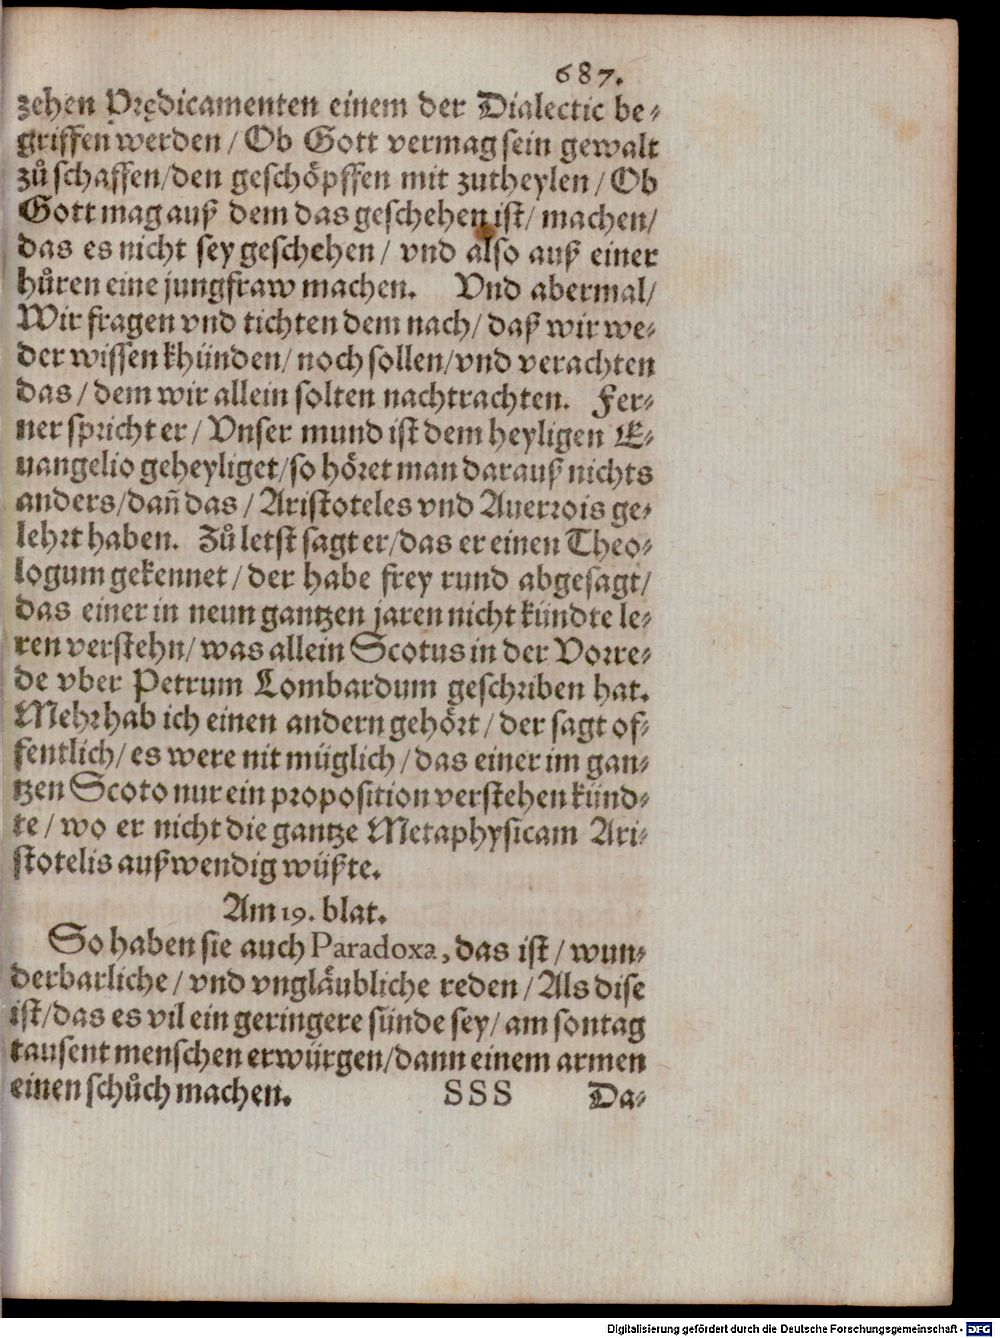 687.
zehen Prędicamenten einem der Dialectic be⸗
griffen werden / Ob Gott vermag sein gewalt
zů schaffen/den geschöpffen mit zutheylen / Ob
Gott mag auß dem das geschehen ist/ machen/
das es nicht sey geschehen / vnd also auß einer
hůren eine jungfraw machen. Vnd abermal/
Wir fragen vnd tichten dem nach/ daß wir we⸗
der wissen khünden/ noch sollen/vnd verachten
das / dem wir allein solten nachtrachten. Fer⸗
ner spricht er / Vnser mund ist dem heyligen E⸗
uangelio geheyliget/so höret man darauß nichts
anders/dañ das / Aristoteles vnd Auerrois ge⸗
lehrt haben. Zů letst sagt er/das er einen Theo⸗
logum gekennet / der habe frey rund abgesagt/
das einer in neun gantzen jaren nicht kündte le⸗
ren verstehn/ was allein Scotus in der Vorre⸗
de vber Petrum Lombardum geschriben hat.
Mehr hab ich einen andern gehört / der sagt of⸗
fentlich/ es were nit müglich / das einer im gan⸗
tzen Scoto nur ein proposition verstehen künd⸗
te / wo er nicht die gantze Metaphysicam Ari⸗
stotelis außwendig wüßte.
Am 19. blat.
So haben sie auch Paradoxa, das ist / wun⸗
derbarliche / vnd vngläubliche reden / Als dise
ist/das es vil ein geringere sünde sey/ am sontag
tausent menschen erwürgen/dann einem armen
einen schůch machen. SSS Da⸗
Digitalisierung gefördert durch die Deutsche Forschungsgemeinschaft - DFG